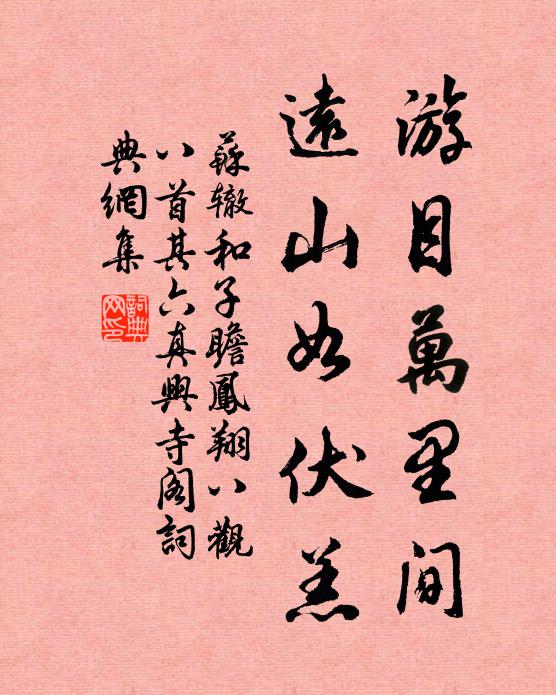 游目萬里間
遠山如伏羔
蘇辙和子瞻鳳翔八觀
八首其六真興寺阁詞
典網集
詞典
网印